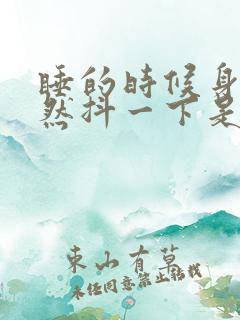 睡的时候身
然抖一下是
東山有草
未经同意禁止搬载